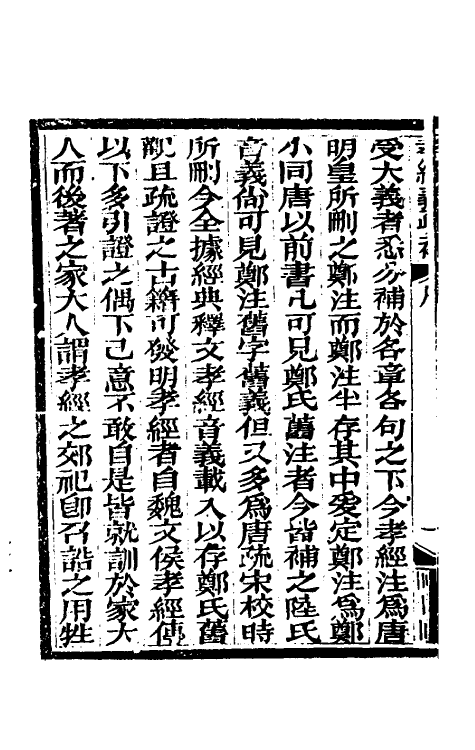 受大義者悉分補於各章各句之下今孝經注爲唐
明皇所刪之鄭注而鄭注半存其中爰定鄭注爲鄭
小同唐以前書凡可見鄭氏舊注者今皆補之陸氏
音義尙可見鄭注舊字舊義但又多爲唐疏宋校時
所刪今全據經典釋文孝經音義載入以存鄭氏舊
觀且疏證之古籍可發明孝經者自魏文侯孝經傳
以下多引證之偶下己意不敢自是皆就訓於家大
人而後著之家大人謂孝經之郊祀卽召誥之用牲
孝經義疏補